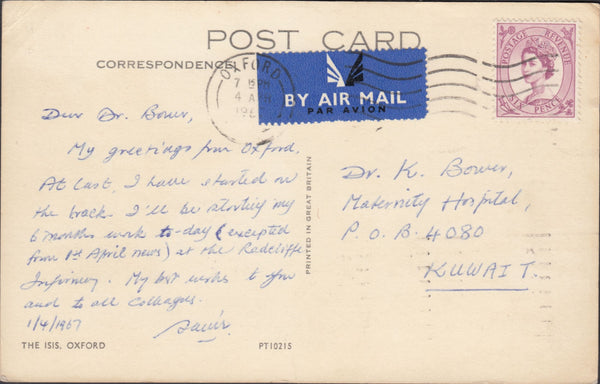 POST CARD
CORRESPONDENCE
OXFORD
7 15PM
4 APR
196
BY AIR MAIL
PAR AVION
POSTAGE REVENUE
SIX PENCE
Dear Dr. Bower,
My greetings from Oxford.
At last, I have started on
the track. I'll be starting my
6 months work to-day (excepted
from 1st April news) at the Radcliffe
Infirmary. My best wishes to you
and to all Colleagues.
1/4/1967
PRINTED IN GREAT BRITAIN
Dr. K. Bower,
Maternity Hospital,
P.O.B. 4080
KUWAIT.
THE ISIS, OXFORD
PT10215